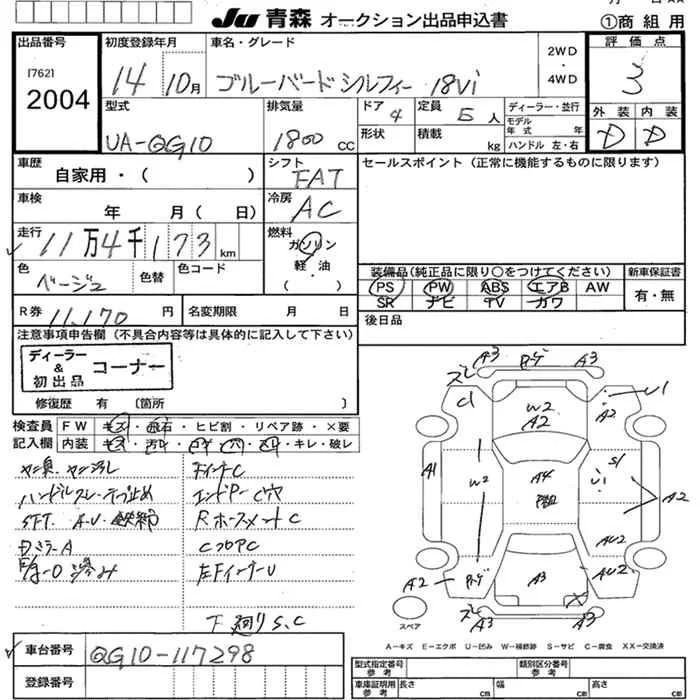 JU 青森 オークション出品申込書
①商組用
出品番号
[762]
2004
初度登録年月
14年10月
車名・グレード
ブルーバードシルフィー 18Vi
2WD
・
4WD
評価点
3
外装 内装
D D
型式
UA-QG10
排気量
1800 CC
ドア 4
定員 5 人
形状
積載 kg
ディーラー・並行
モデル年式 年
ハンドル 左・右
車歴
自家用・( )
シフト
FAT
セールスポイント(正常に機能するものに限ります)
車検
年 月( 日)
冷房
AC
走行
11万4千173 km
燃料
ガソリン
軽・油
( )
色
ベージュ
色替
色コード
装備品(純正品に限り○をつけてください)
PS PW ABS エアB AW
SR ナビ TV カワ
新車保証書
有・無
R券
11,170 円
名変期限 月 日
後日品
注意事項申告欄(不具合内容等は具体的に記入して下さい)
ディーラー
&
初出品
コーナー
修復歴 有 〔箇所 〕
検査員記入欄
FW キズ・飛石・ヒビ割・リペア跡・×要
内装 キズ・汚れ・コゲ・穴・スリ・キレ・破レ
ハンドルスレ・テープ止め
エンドPイ C穴
Rホースメント C
CフロアC
下廻りS,C
ズレ A3 A3
C1 W2 A2 A2 U1
A1 W2 A4 S1 U1 A2
AU2
A2 A3 AU2
ズレ A3 X A3
スペア
A-キズ E-エクボ U-凹み W-補修跡 S-サビ C-腐食 XX-交換済
車台番号
QG10-117298
登録番号
型式指定番号
参考
類別区分番号
参考
車庫証明用
参考
長さ cm
幅 cm
高さ cm